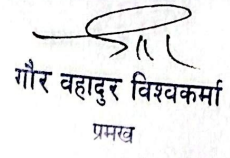 गौर वहादुर विश्वकर्मा
प्रमुख